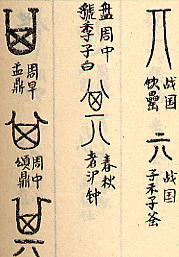 战国
罍
战国
子禾子釜
周中
虢季子白
盘
春秋
者沪钟
周早
盂鼎
周中
颂鼎